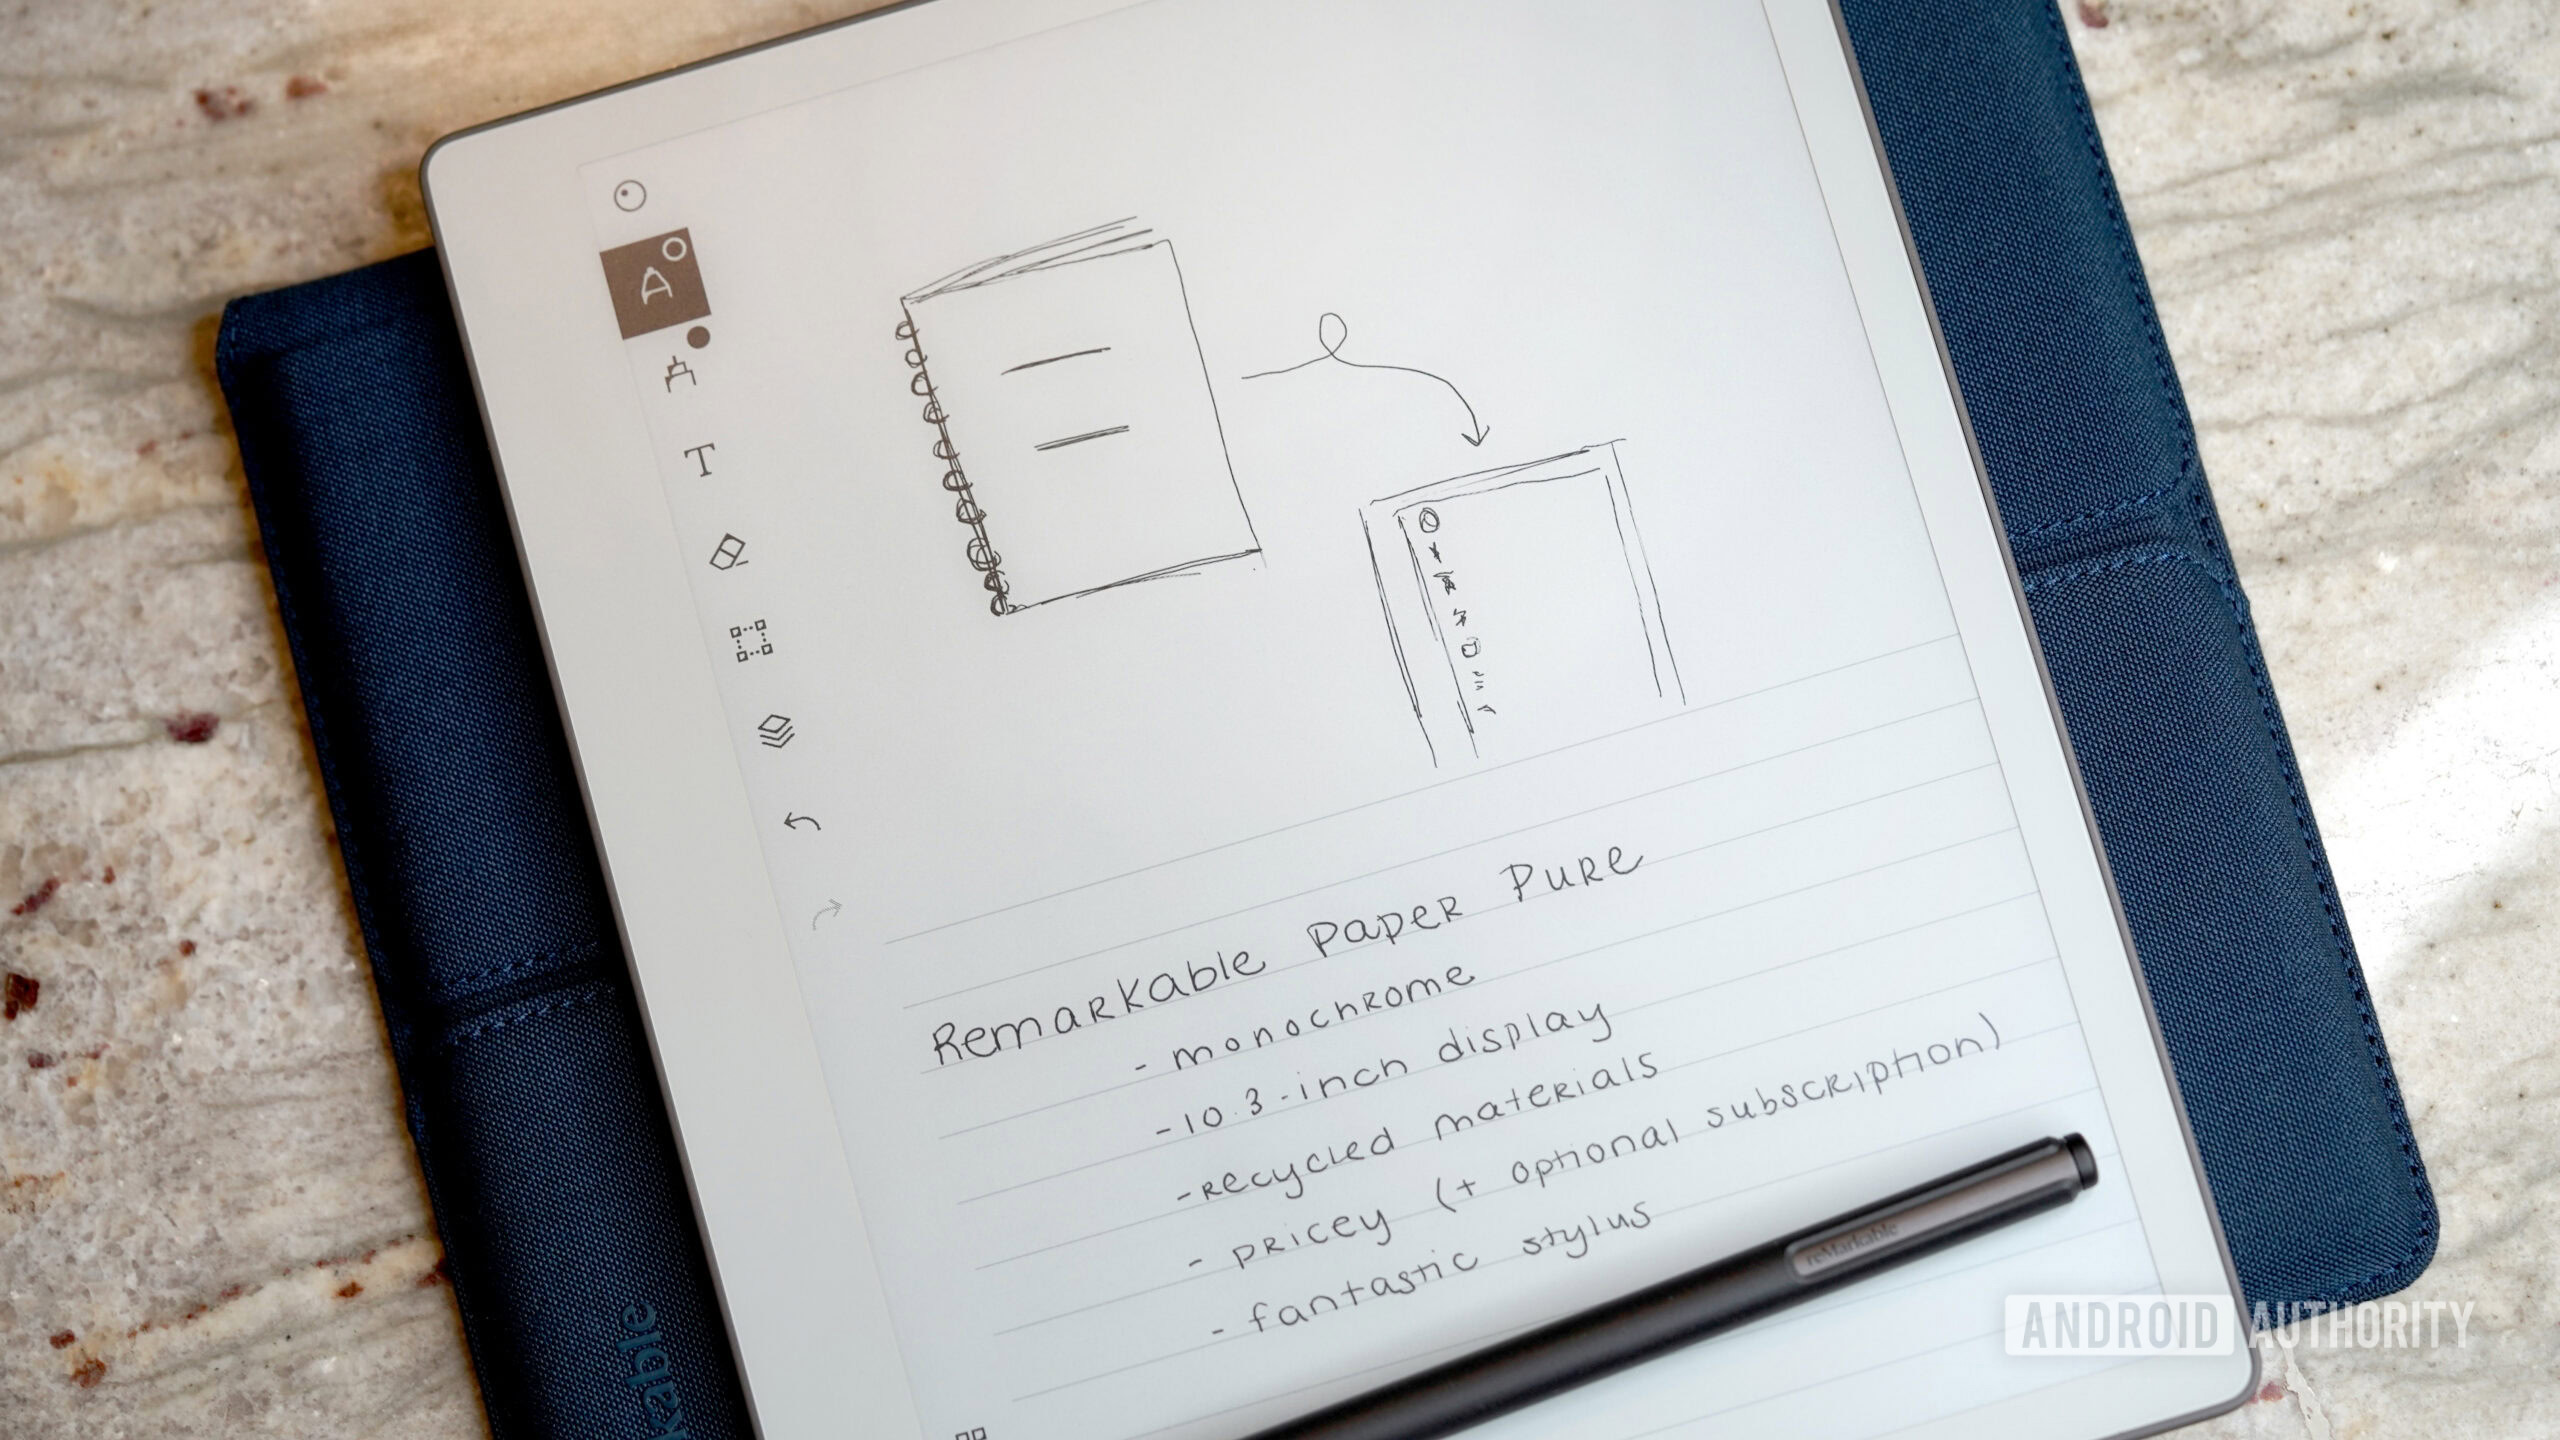 Remarkable Paper Pure
- monochrome
- 10.3-inch display
- recycled materials
- pricey (+ optional subscription)
- fantastic stylus
T
reMarkable
kable
ANDROID AUTHORITY